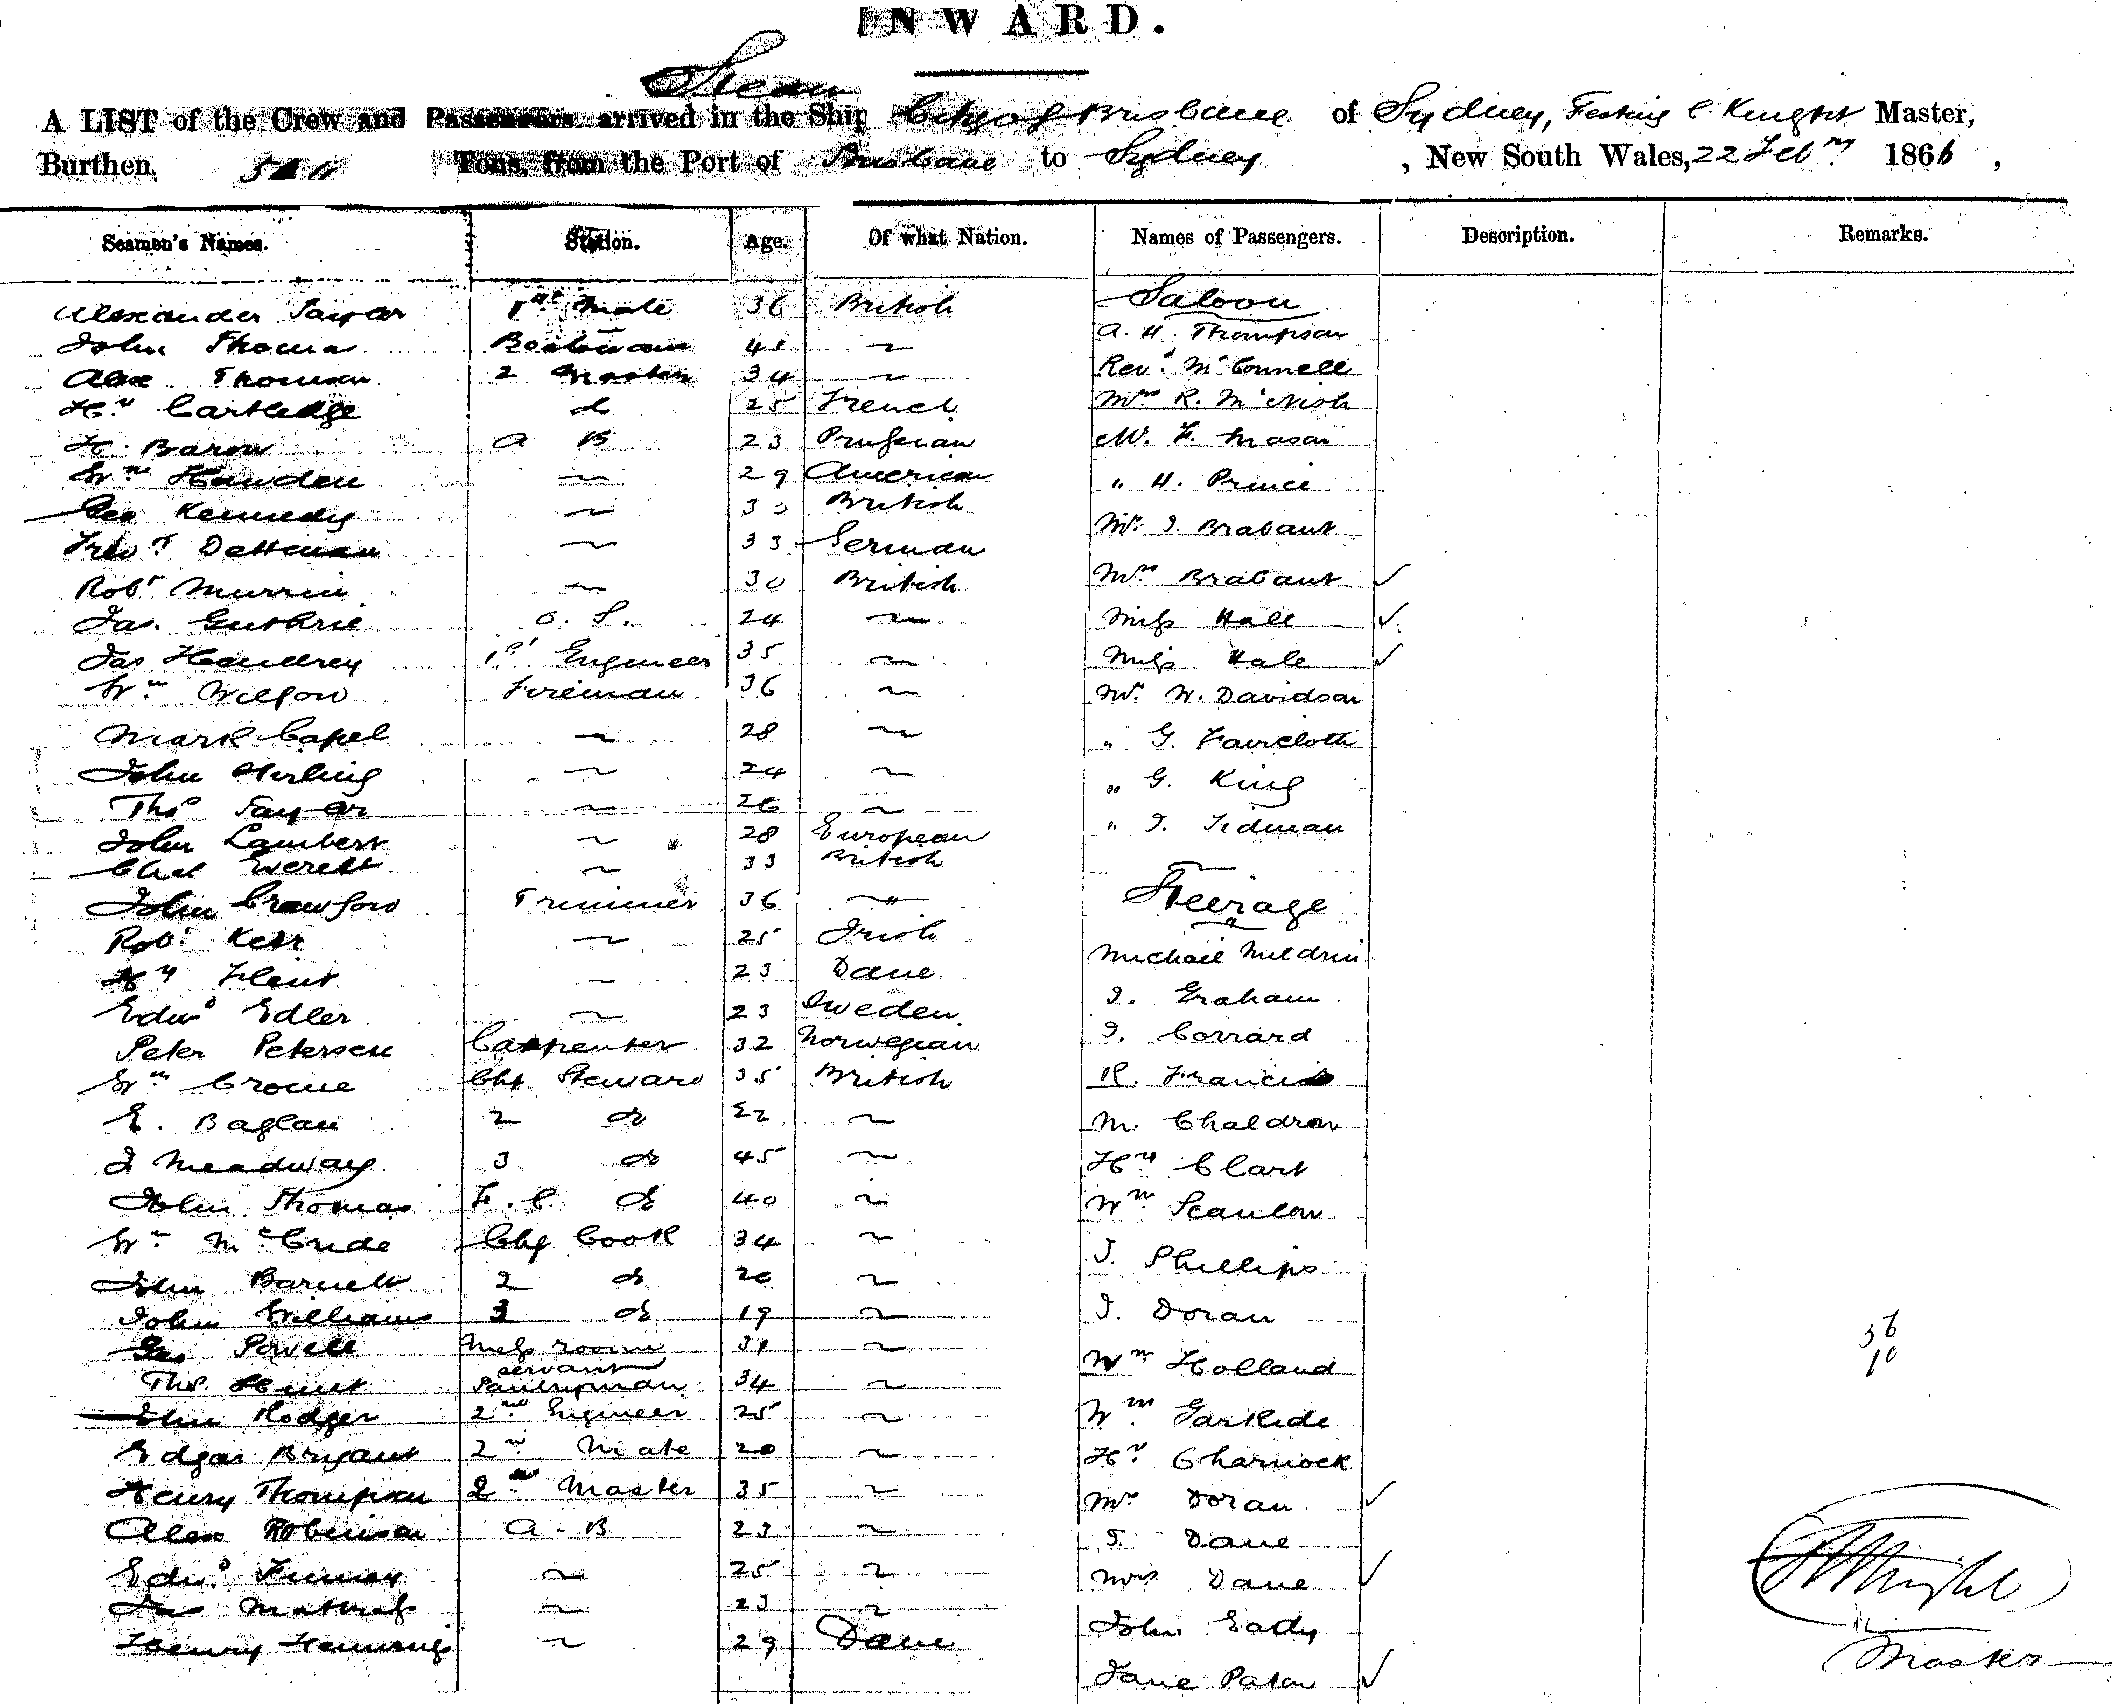 INWARD.
Steam
A LIST of the Crew and Passengers arrived in the Ship City of Brisbane of Sydney, Knight Master,
Burthen, Tons, from the Port of Brisbane to Sydney, New South Wales, 22 Feby 1866,
Seamen's Names. Station. Age. Of what Nation. Names of Passengers. Description. Remarks.
Saloon
Alexander Taylor 1st Mate 36 British
A. H. Thompson
John Thoms Boatswain 41 ~
Revd McConnell
Alex Thomson 2 Master 34 ~
Hy Cartledge do 25 French Mrs R. McNish
H. Baron A B 23 Prussian M. F. Mason
Wm Hawden ~ 29 American " H. Prince
Geo Kennedy ~ 30 British
Mr. J. Brabant
Fredk Detteman ~ 33 German
Robt Murrin ~ 30 British Mrs Brabant ✓
Jas. Guthrie O. S. 24 ~ Miss Hall ✓
Jas Hendrey 1st Engineer 35 ~ Miss Hale ✓
Wm Wilson Fireman 36 ~ Mr. W. Davidson
Mark Capel ~ 28 ~ " G. Faircloth
John Stirling ~ 24 ~ " G. King
Thos Taylor ~ 26 ~
John Lambert ~ 28 European " J. Tidman
Chas Everett ~ 33 British
John Crawford Trimmer 36 ~ Steerage
Robt Kerr ~ 25 Irish
Michael Muldrin
Hy Flent ~ 23 Dane
J. Graham
Edwd Edler ~ 23 Sweden
Peter Petersen Carpenter 32 Norwegian J. Corrard
Wm Crome Chf Steward 35 British R. Francis
E. Baglan 2 do 22 ~ M. Chaldron
J Meadway 3 do 45 ~ Hy Clart
John Thomas F. C. do 40 ~ Wm Scanlon
Wm McCride Chf Cook 34 ~
J. Phillips
John Barnett 2 do 20 ~
John Williams 3 do 19 ~ J. Doran
36
Geo Powell Mess room servant 31 ~ Wm Holland
10
Thos. Hunt Pantryman 34 ~
John Rodger 2nd Engineer 25 ~ Wm Garside
Edgar Bryant 2nd Mate 20 ~ Hy Charnock
Henry Thompson 2nd Master 35 ~ Mrs Doran ✓
Alex Robinson A. B 23 ~ J. Dane
Edwd Finney ~ 25 ~ Mrs Dane ✓
Jas ~ 23 ~
John Eady
Henry Hennings ~ 29 Dane
Jane Paton ✓
Knight
Master